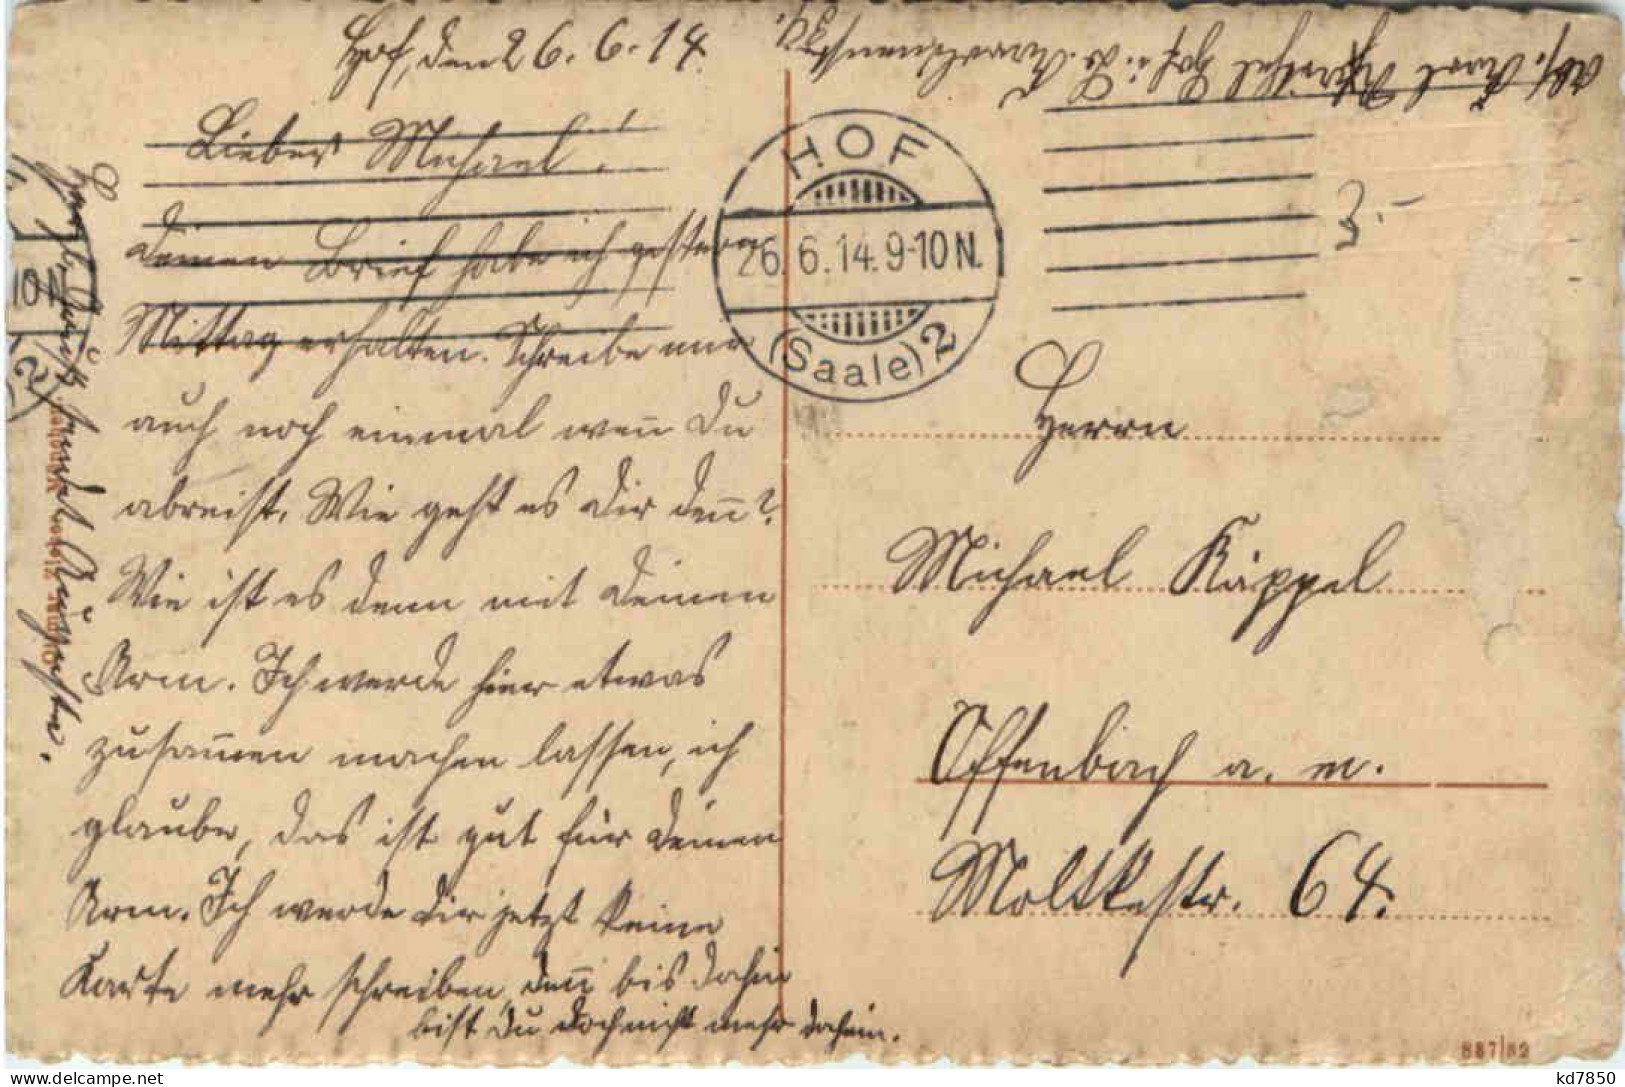 Hof, den 26. 6. 14.
Lieber Michael!
Deinen Brief habe ich gestern
Mittag erhalten. Schreibe mir
auch noch einmal wen̄ Du
abreist. Wie geht es Dir den̄?
Wie ist es denn mit Deinem
Arm. Ich werde hier etwas
zusam̄en machen lassen, ich
glaube, das ist gut für Deinen
Arm. Ich werde Dir jetzt keine
Karte mehr schreiben, den̄ bis dahin
bist Du doch nicht mehr daheim.
Herzl. Grüße sendet Auguste.
Abs. Karl Hof i. B.
HOF
26. 6. 14. 9-10 N.
(Saale) 2
3.-
Herrn
Michael Käppel
Offenbach a. M.
Moltkestr. 64.
887/82
kd7850